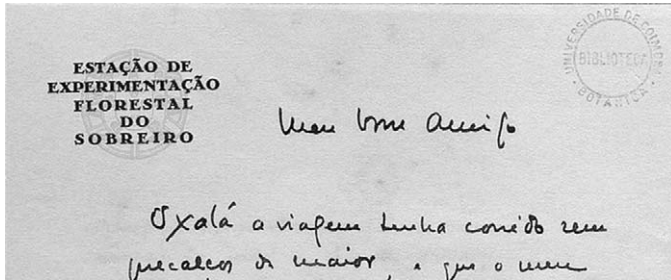 ESTAÇÃO DE
EXPERIMENTAÇÃO
FLORESTAL
DO
SOBREIRO
UNIVERSIDADE DE COIMBRA
BIBLIOTECA
BOTANICA
Meu bom Amigo
Oxalá a viagem tenha corrido sem
precalços de maior, e que o meu